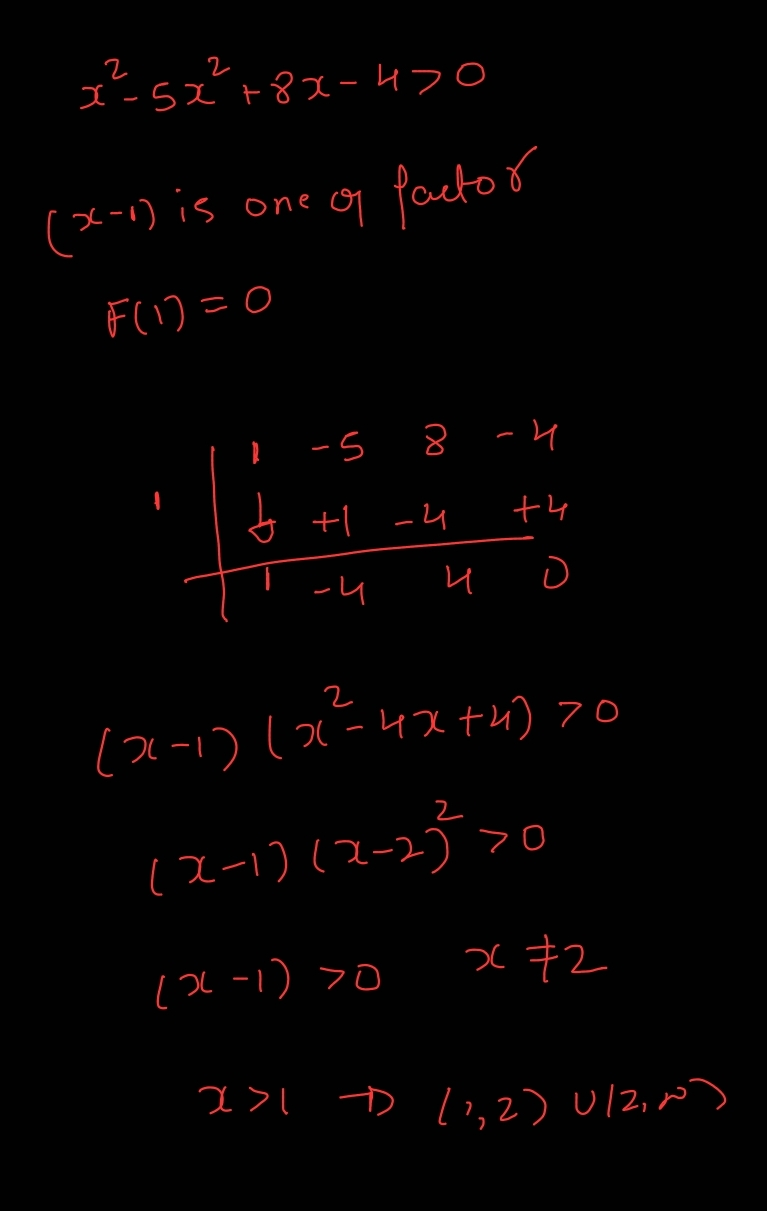 x²-5x²+8x-4>0
(x-1) is one of factor
F(1)=0
1 -5 8 -4
1 ↓ +1 -4 +4
1 -4 4 0
(x-1)(x²-4x+4)>0
(x-1)(x-2)²>0
(x-1)>0 x≠2
x>1 → (1,2)∪(2,∞)